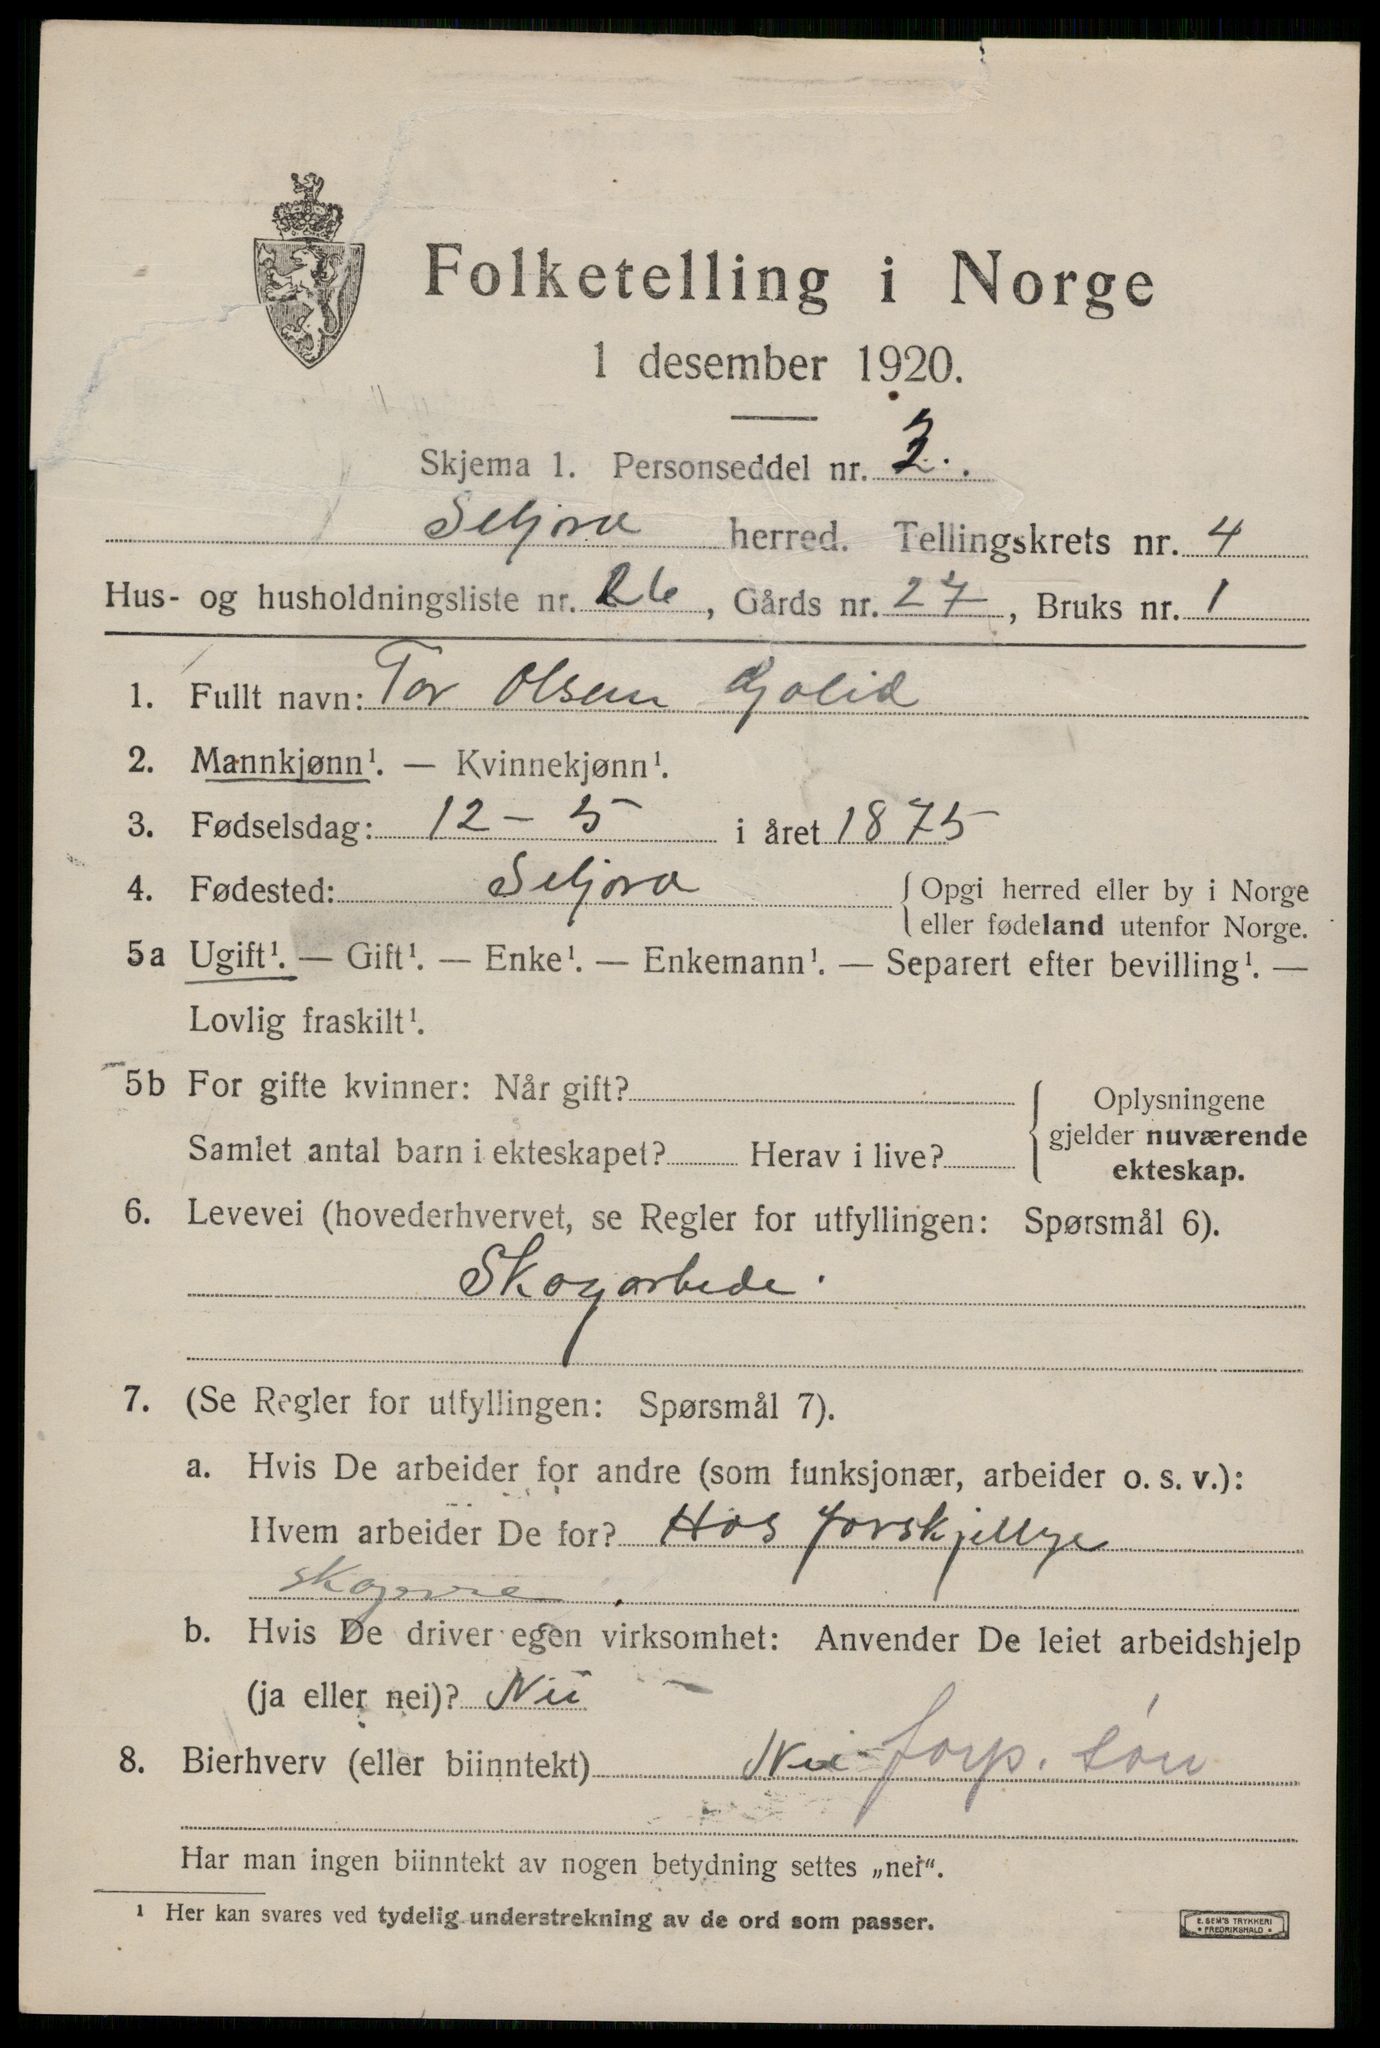 Folketelling i Norge
1 desember 1920.
Skjema 1. Personseddel nr.
Seljord herred. Tellingskrets nr. 4
Hus- og husholdningsliste nr. 26, Gårds nr. 27, Bruks nr. 1
1. Fullt navn: Tor Olsen
2. Mannkjønn¹. — Kvinnekjønn¹.
3. Fødselsdag: 12 - 5 i året 1875
4. Fødested: Seljord {Opgi herred eller by i Norge
eller fødeland utenfor Norge.
5a Ugift¹. — Gift¹. — Enke¹. — Enkemann¹. — Separert efter bevilling¹. —
Lovlig fraskilt¹.
5b For gifte kvinner: Når gift? {Oplysningene
gjelder nuværende
ekteskap.
Samlet antal barn i ekteskapet? Herav i live?
6. Levevei (hovederhvervet, se Regler for utfyllingen: Spørsmål 6).
Skogarbede.
7. (Se Regler for utfyllingen: Spørsmål 7).
a. Hvis De arbeider for andre (som funksjonær, arbeider o. s. v.):
Hvem arbeider De for? Hos forskjellige
b. Hvis De driver egen virksomhet: Anvender De leiet arbeidshjelp
(ja eller nei)? Nei
8. Bierhverv (eller biinntekt) Nei forp. søn
Har man ingen biinntekt av nogen betydning settes „nei“.
¹ Her kan svares ved tydelig understrekning av de ord som passer.
E. SEM'S TRYKKERI
• FREDRIKSHALD •